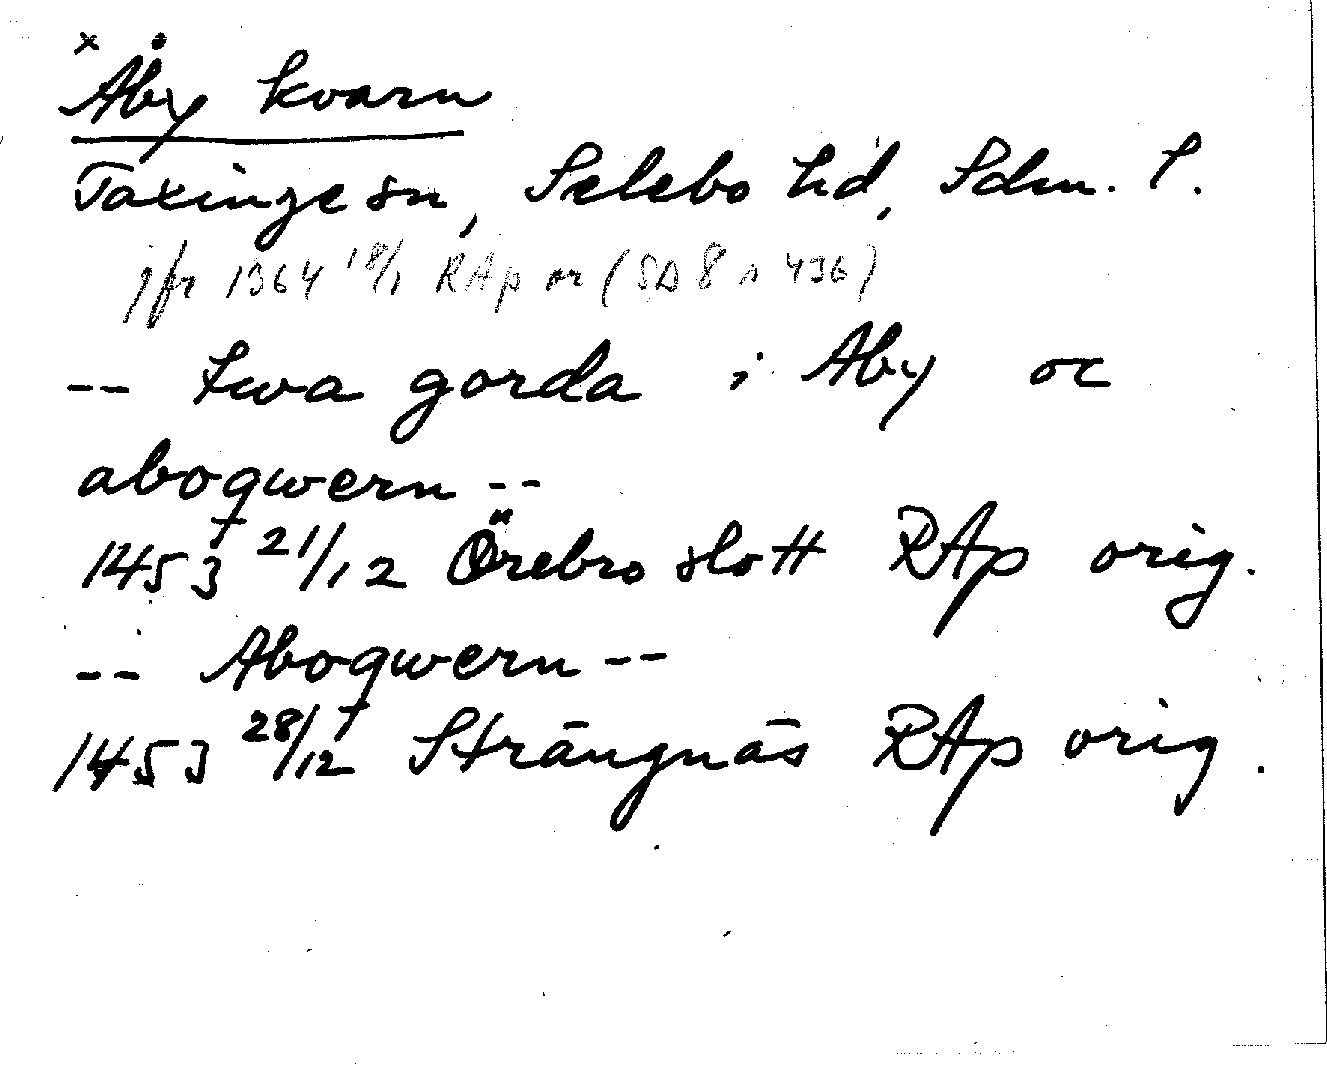 x Åby kvarn
Taxinge sn, Selebo hd, Sdm. l.
jfr 1364 18/1 RAp or (SD 8 s 436)
-- twa gorda i Aby oc
aboqwern --
1453 21/12 Örebro slott RAp orig.
-- Aboqwern --
1453 28/12 Strängnäs RAp orig.